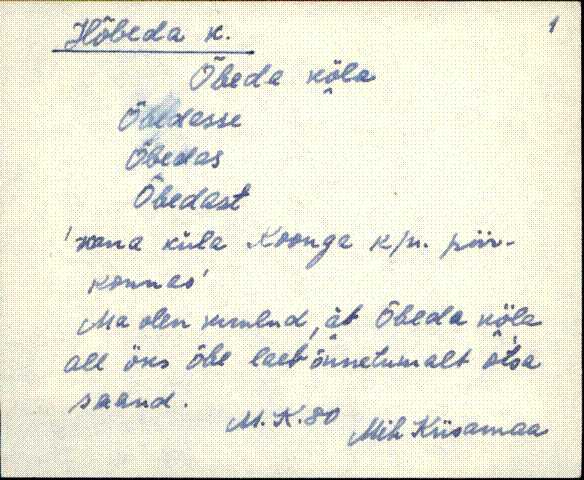 1
Hõbeda k.
Õbeda kõla
Õbedasse
Õbedas
Õbedast
'vana küla Koonga k/n. piir-
konnas'
Ma olen kuulnd, ät Õbeda kõla
all öks õbe laeb õnnetumalt õtsa
saand.
M.K.80 Mih Kiisamaa